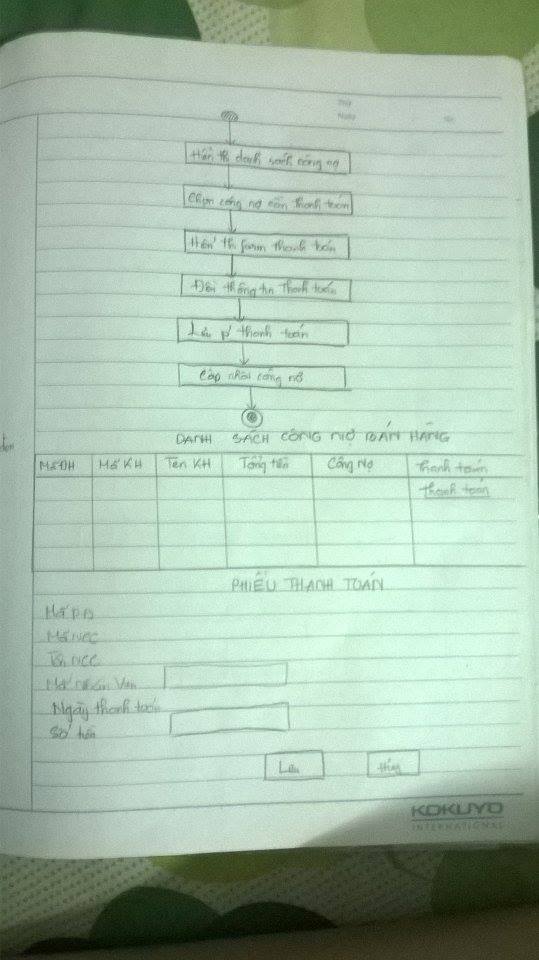 Thứ
Ngày
Hiển thị danh sách công nợ
Chọn công nợ cần thanh toán
Hiển thị form thanh toán
Điền thông tin Thanh toán
Lưu p' thanh toán
Cập nhật công nợ
DANH SÁCH CÔNG NỢ BÁN HÀNG
Mã ĐH Mã KH Tên KH Tổng tiền Công Nợ Thanh toán
Thanh toán
PHIẾU THANH TOÁN
Mã NCC
Tên NCC
Mã Nhân Viên
Ngày thanh toán
Số tiền
Lưu Hủy
KOKUYO
INTERNATIONAL